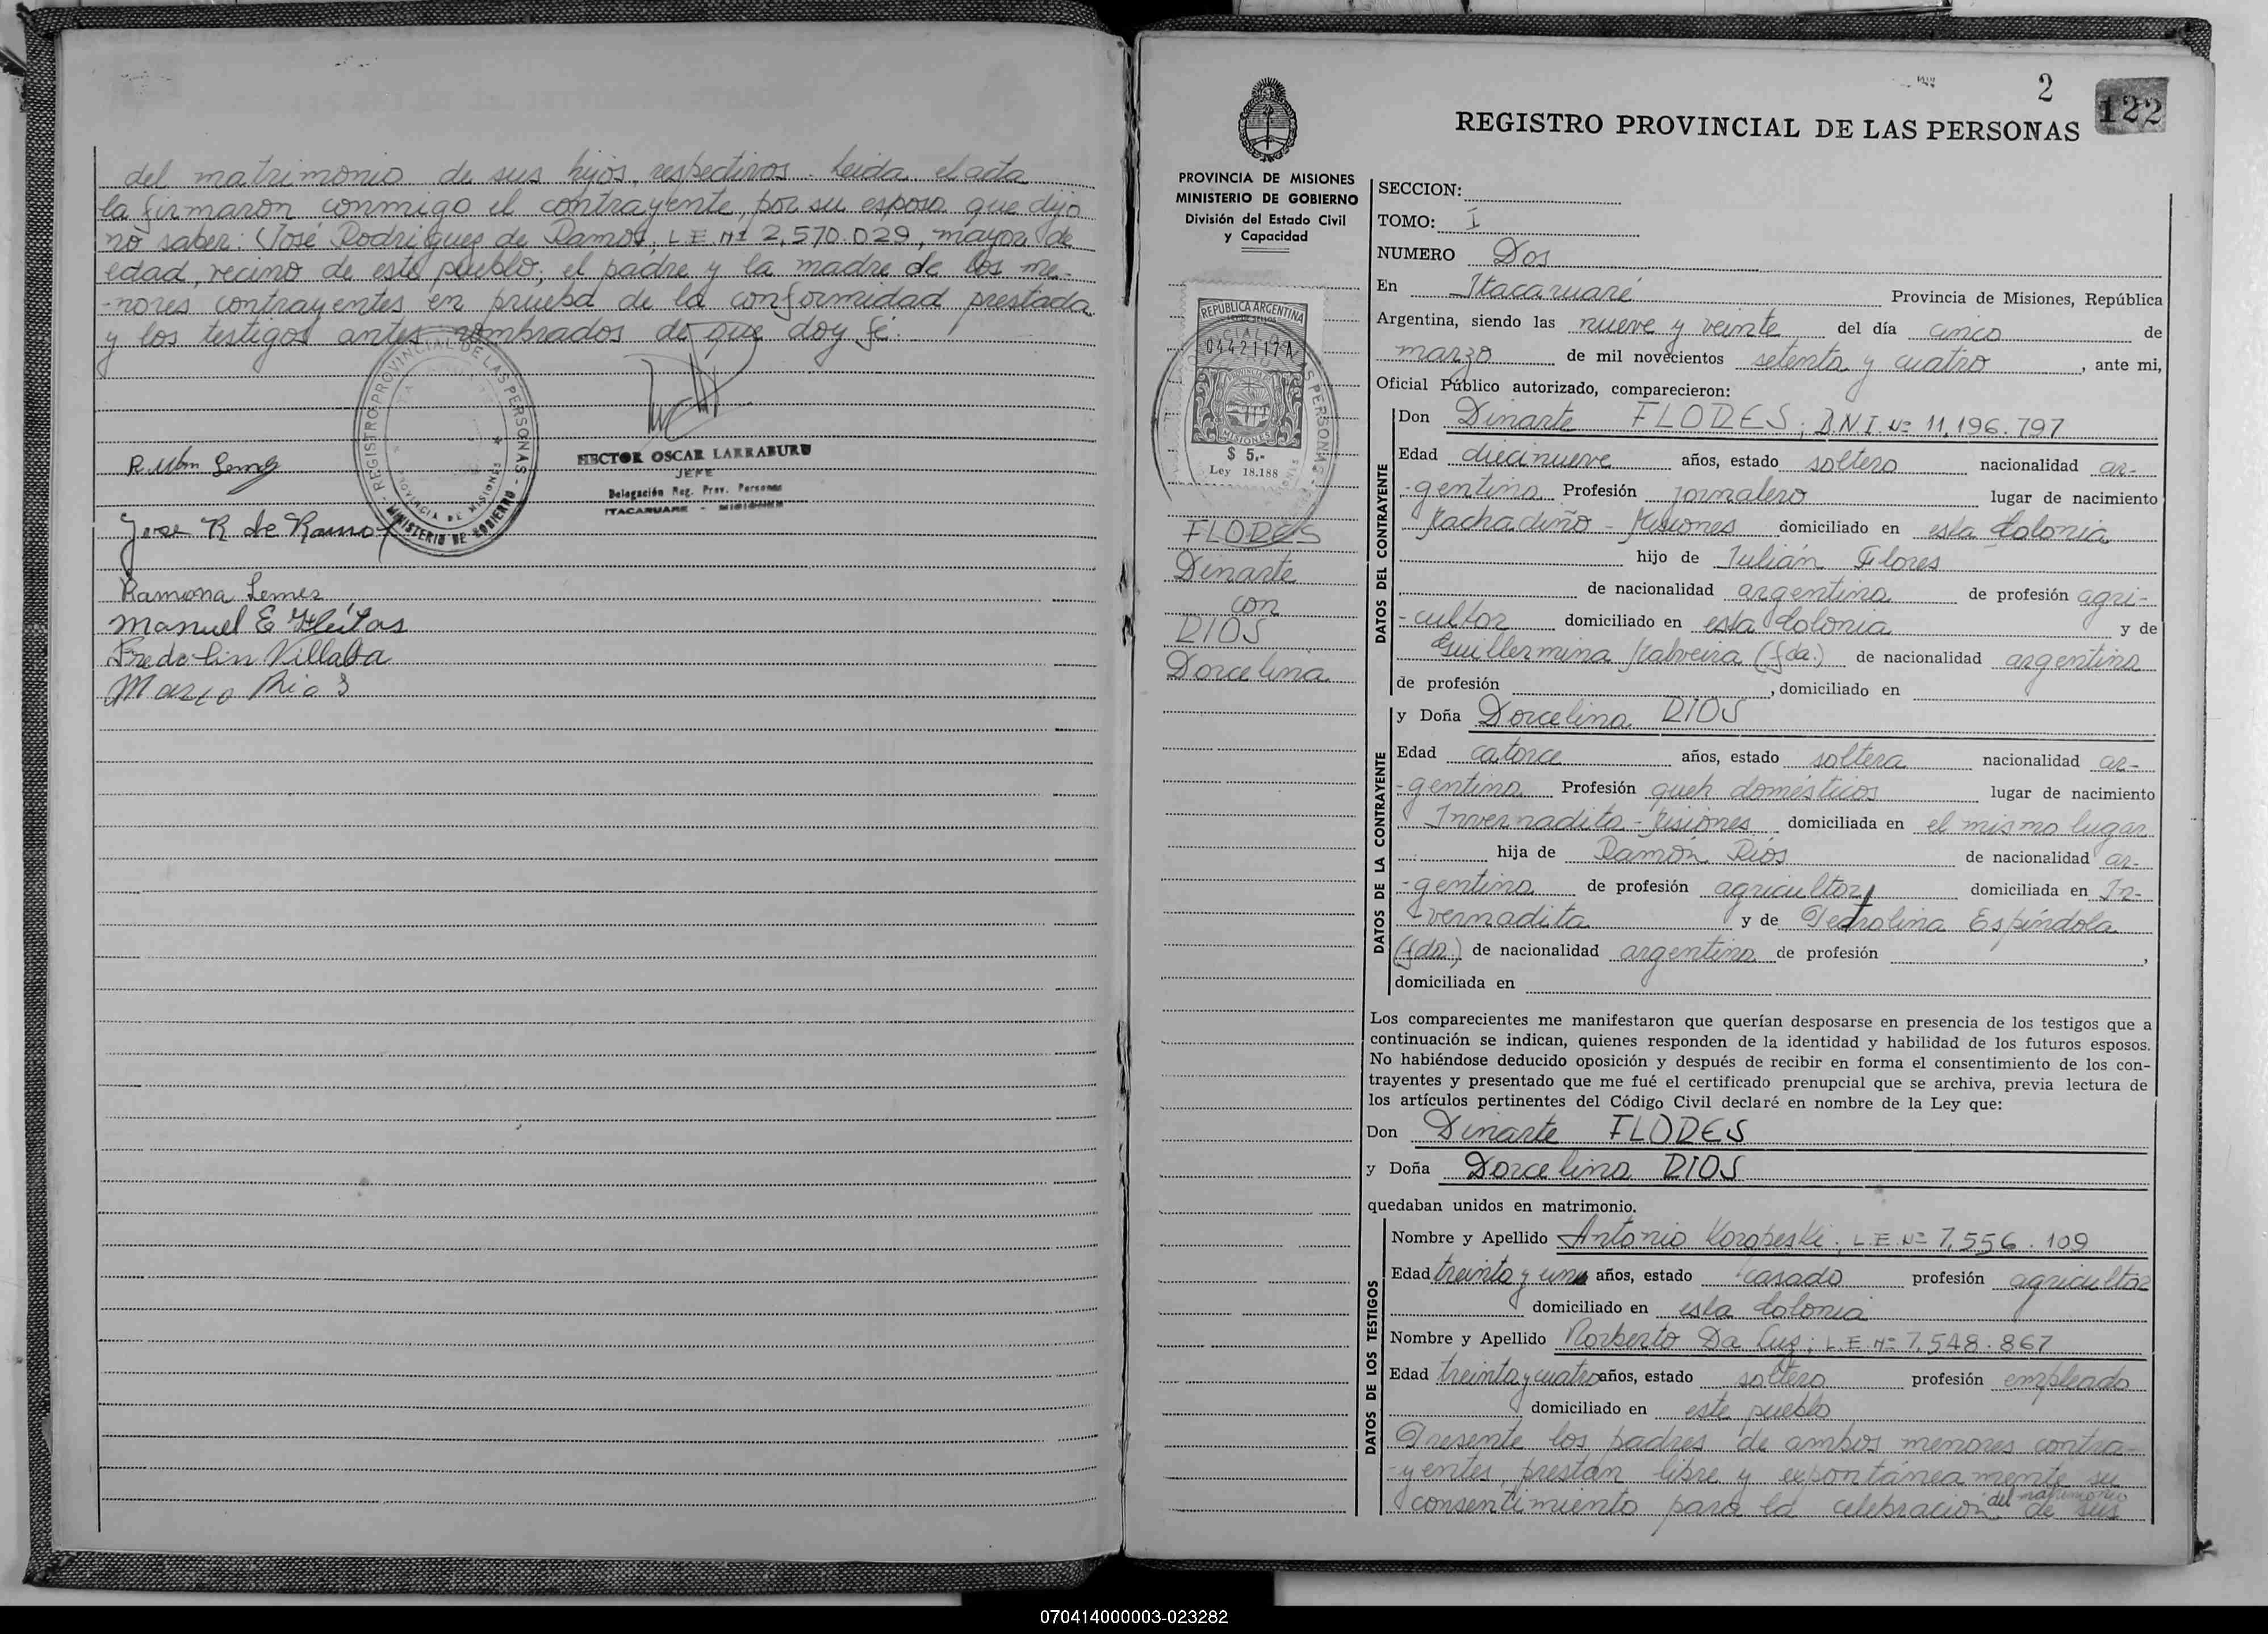 del matrimonio de sus hijos respectivos. Leida el acta
la firmaron conmigo el contrayente, por su esposa que dijo
no saber: José Rodriguez de Ramos, L.E. Nº 2,570.029, mayor de
edad, vecino de este pueblo; el padre y la madre de los me-
-nores contrayentes en prueba de la conformidad prestada
y los testigos antes nombrados de que doy fé.
REGISTRO PROVINCIAL DE LAS PERSONAS
PROVINCIA DE MISIONES
MINISTERIO DE GOBIERNO
HECTOR OSCAR LARRABURU
JEFE
Delegación Reg. Prov. Personas
ITACARUARE - MISIONES
Jose R de Ramos
Ramona Lemes
Manuel E Fleitas
Fredolin Villalba
Mario Rios
2
122
REGISTRO PROVINCIAL DE LAS PERSONAS
PROVINCIA DE MISIONES
MINISTERIO DE GOBIERNO
División del Estado Civil
y Capacidad
REPUBLICA ARGENTINA
0442117A
MISIONES
$ 5.-
Ley 18.188
FLORES
Dinarte
con
RIOS
Dorcelina
SECCION:
TOMO: I
NUMERO Dos
En Itacaruaré Provincia de Misiones, República
Argentina, siendo las nueve y veinte del día cinco de
marzo de mil novecientos setenta y cuatro, ante mi,
Oficial Público autorizado, comparecieron:
DATOS DEL CONTRAYENTE
Don Dinarte FLORES; D.N.I. Nº 11,196.797
Edad diecinueve años, estado soltero nacionalidad ar-
-gentina Profesión jornalero lugar de nacimiento
Machadiño - Misiones domiciliado en esta Colonia
hijo de Julián Flores
de nacionalidad argentina de profesión agri-
-cultor domiciliado en esta Colonia y de
Guillermina Malveira (fda.) de nacionalidad argentina
de profesión , domiciliado en
DATOS DE LA CONTRAYENTE
y Doña Dorcelina RIOS
Edad catorce años, estado soltera nacionalidad ar-
-gentina Profesión queh. domésticos lugar de nacimiento
Invernadita - Misiones domiciliada en el mismo lugar
hija de Ramón Rios de nacionalidad ar-
-gentina de profesión agricultor domiciliada en In-
-vernadita y de Pedrolina Espíndola
(fda.) de nacionalidad argentina de profesión ,
domiciliada en
Los comparecientes me manifestaron que querían desposarse en presencia de los testigos que a
continuación se indican, quienes responden de la identidad y habilidad de los futuros esposos.
No habiéndose deducido oposición y después de recibir en forma el consentimiento de los con-
trayentes y presentado que me fué el certificado prenupcial que se archiva, previa lectura de
los artículos pertinentes del Código Civil declaré en nombre de la Ley que:
Don Dinarte FLORES
y Doña Dorcelina RIOS
quedaban unidos en matrimonio.
DATOS DE LOS TESTIGOS
Nombre y Apellido Antonio Koropeski; L.E. Nº 7,556.109
Edad treinta y uno años, estado casado profesión agricultor
domiciliado en esta Colonia
Nombre y Apellido Norberto Da Luz; L.E. Nº 7,548.867
Edad treinta y cuatro años, estado soltero profesión empleado
domiciliado en este pueblo
Presente los padres de ambos menores contra-
-yentes, prestan libre y expontáneamente su
consentimiento para la celebración del matrimonio de sus
070414000003-023282